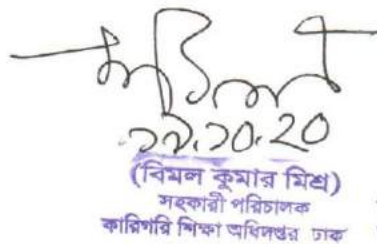 ২৯.১০.২০
(বিমল কুমার মিশ্র)
সহকারী পরিচালক
কারিগরি শিক্ষা অধিদপ্তর ঢাকা